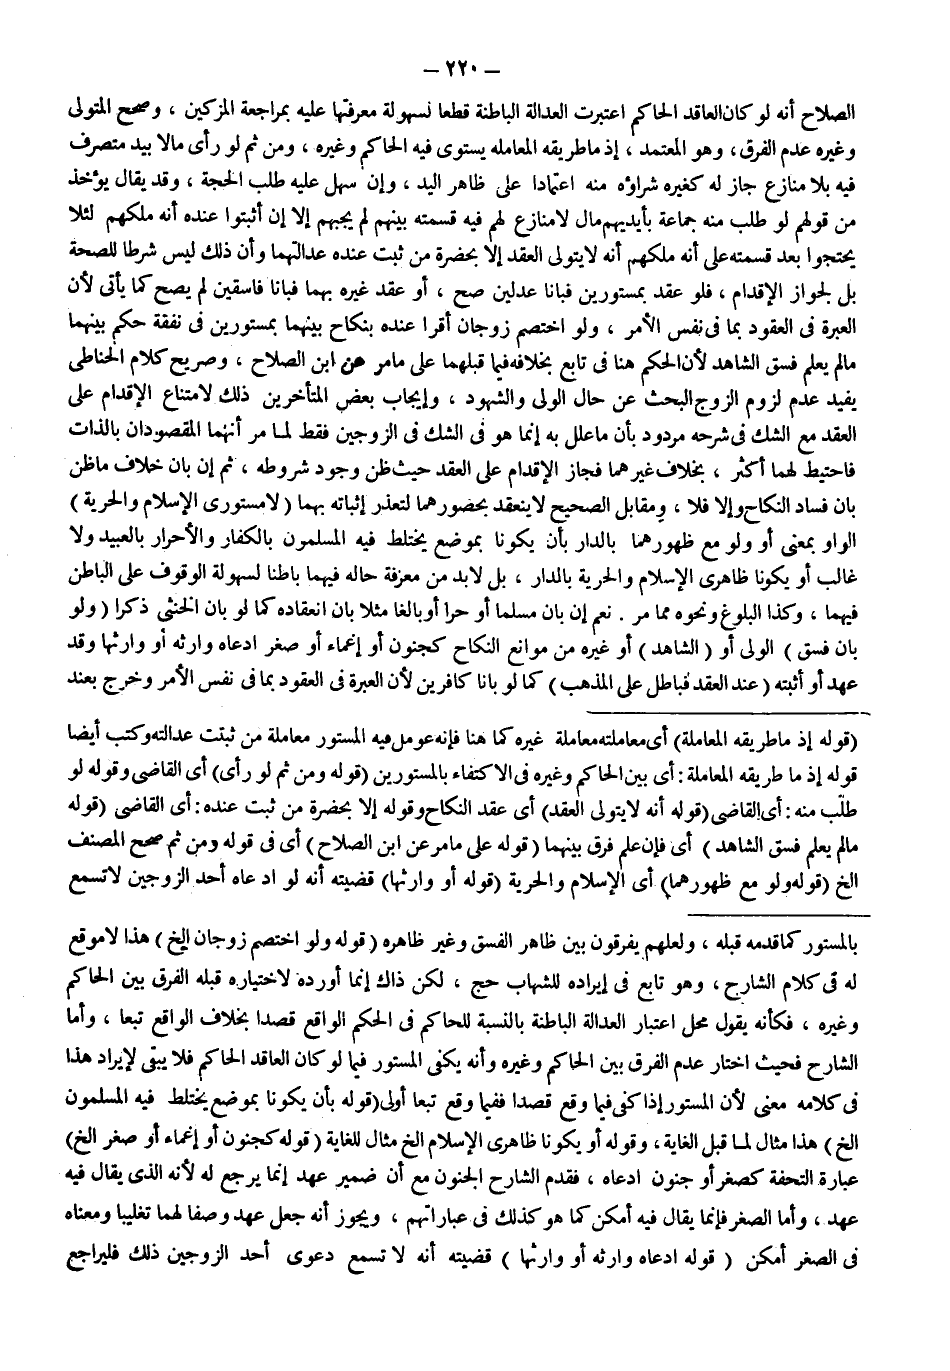 – ٢٢٠ –
الصلاح أنه لو كان العاقد الحاكم اعتبرت العدالة الباطنة قطعا لسهولة معرفتها عليه بمراجعة المزكين ، وصحح المتولى
وغيره عدم الفرق، وهو المعتمد ، إذ ماطريقه المعاملة يستوى فيه الحاكم وغيره ، ومن ثم لو رأى مالا بيد متصرف
فيه بلا منازع جاز له كغيره شراؤه منه اعتمادا على ظاهر اليد ، وإن سهل عليه طلب الحجة ، وقد يقال يؤخذ
من قولهم لو طلب منه جماعة بأيديهم مال لامنازع لهم فيه قسمته بينهم لم يجبهم إلا إن أثبتوا عنده أنه ملكهم لئلا
يحتجوا بعد قسمته على أنه ملكهم أنه لايتولى العقد إلا بحضرة من ثبت عنده عدالتهما وأن ذلك ليس شرطا للصحة
بل لجواز الإقدام ، فلو عقد بمستورين فبانا عدلين صح ، أو عقد غيره بهما فبانا فاسقين لم يصح كما يأتى لأن
العبرة فى العقود بما فى نفس الأمر ، ولو اختصم زوجان أقرا عنده بنكاح بينهما بمستورين فى نفقة حكم بينهما
مالم يعلم فسق الشاهد لأن الحكم هنا فى تابع بخلافه فيما قبلهما على مامر عن ابن الصلاح ، وصريح كلام الحناطى
يفيد عدم لزوم الزوج البحث عن حال الولى والشهود ، وإيجاب بعض المتأخرين ذلك لامتناع الإقدام على
العقد مع الشك فى شرحه مردود بأن ماعلل به إنما هو فى الشك فى الزوجين فقط لما مر أنهما المقصودان بالذات
فاحتيط لهما أكثر ، بخلاف غيرهما فجاز الإقدام على العقد حيث ظن وجود شروطه ، ثم إن بان خلاف ماظن
بان فساد النكاح وإلا فلا ، ومقابل الصحيح لاينعقد بحضورهما لتعذر إثباته بهما ( لامستورى الإسلام والحرية )
الواو بمعنى أو ولو مع ظهورهما بالدار بأن يكونا بموضع يختلط فيه المسلمون بالكفار والأحرار بالعبيد ولا
غالب أو يكونا ظاهرى الإسلام والحرية بالدار ، بل لابد من معرفة حاله فيهما باطنا لسهولة الوقوف على الباطن
فيهما ، وكذا البلوغ ونحوه مما مر . نعم إن بان مسلما أو حرا أو بالغا مثلا بان انعقاده كما لو بان الخنثى ذكرا ( ولو
بان فسق ) الولى أو ( الشاهد ) أو غيره من موانع النكاح كجنون أو إغماء أو صغر ادعاه وارثه أو وارثها وقد
عهد أو أثبته ( عند العقد فباطل على المذهب ) كما لو بانا كافرين لأن العبرة فى العقود بما فى نفس الأمر وخرج بعند
(قوله إذ ماطريقه المعاملة) أى معاملته معاملة غيره كما هنا فإنه عومل فيه المستور معاملة من ثبتت عدالته وكتب أيضا
قوله إذ ما طريقه المعاملة : أى بين الحاكم وغيره فى الاكتفاء بالمستورين (قوله ومن ثم لو رأى) أى القاضى وقوله لو
طلب منه : أى القاضى (قوله أنه لايتولى العقد) أى عقد النكاح وقوله إلا بحضرة من ثبت عنده : أى القاضى (قوله
مالم يعلم فسق الشاهد ) أى فإن علم فرق بينهما (قوله على مامر عن ابن الصلاح ) أى فى قوله ومن ثم صحح المصنف
الخ (قوله ولو مع ظهورهما) أى الإسلام والحرية (قوله أو وارثها) قضيته أنه لو ادعاه أحد الزوجين لاتسمع
بالمستور كما قدمه قبله ، ولعلهم يفرقون بين ظاهر الفسق وغير ظاهره ( قوله ولو اختصم زوجان الخ ) هذا لاموقع
له فى كلام الشارح ، وهو تابع فى إيراده للشهاب حج ، لكن ذاك إنما أورده لاختياره قبله الفرق بين الحاكم
وغيره ، فكأنه يقول محل اعتبار العدالة الباطنة بالنسبة للحاكم فى الحكم الواقع قصدا بخلاف الواقع تبعا ، وأما
الشارح فحيث اختار عدم الفرق بين الحاكم وغيره وأنه يكفى المستور فيما لو كان العاقد الحاكم فلا يبقى لإيراد هذا
فى كلامه معنى لأن المستور إذا كفى فيما وقع قصدا ففيما وقع تبعا أولى (قوله بأن يكونا بموضع يختلط فيه المسلمون
الخ ) هذا مثال لما قبل الغاية ، وقوله أو يكونا ظاهرى الإسلام الخ مثال للغاية ( قوله كجنون أو إغماء أو صغر الخ)
عبارة التحفة كصغر أو جنون ادعاه ، فقدم الشارح الجنون مع أن ضمير عهد إنما يرجع له لأنه الذى يقال فيه
عهد ، وأما الصغر فإنما يقال فيه أمكن كما هو كذلك فى عباراتهم ، ويجوز أنه جعل عهد وصفا لهما تغليبا ومعناه
فى الصغر أمكن ( قوله ادعاه وارثه أو وارثها ) قضيته أنه لا تسمع دعوى أحد الزوجين ذلك فليراجع